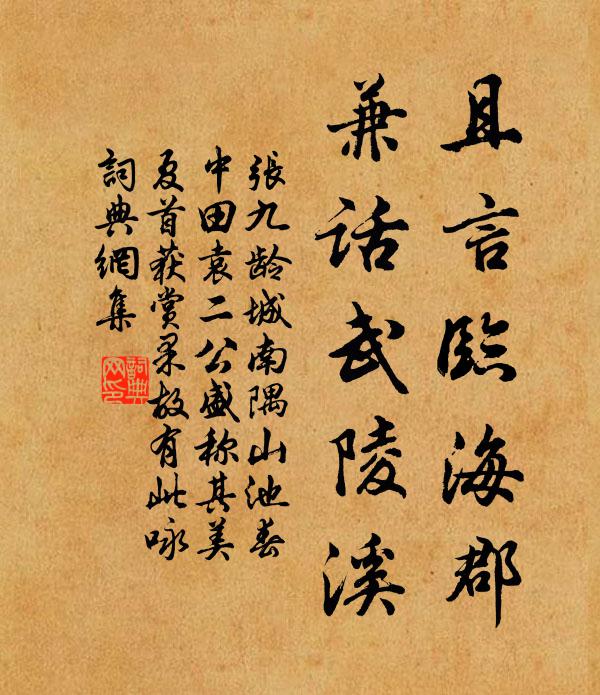 且言臨海郡
兼話武陵溪
張九齡城南隅山池春
中田袁二公盛称其美
夏首獲賞果故有此咏
詞典網集
詞典
网印